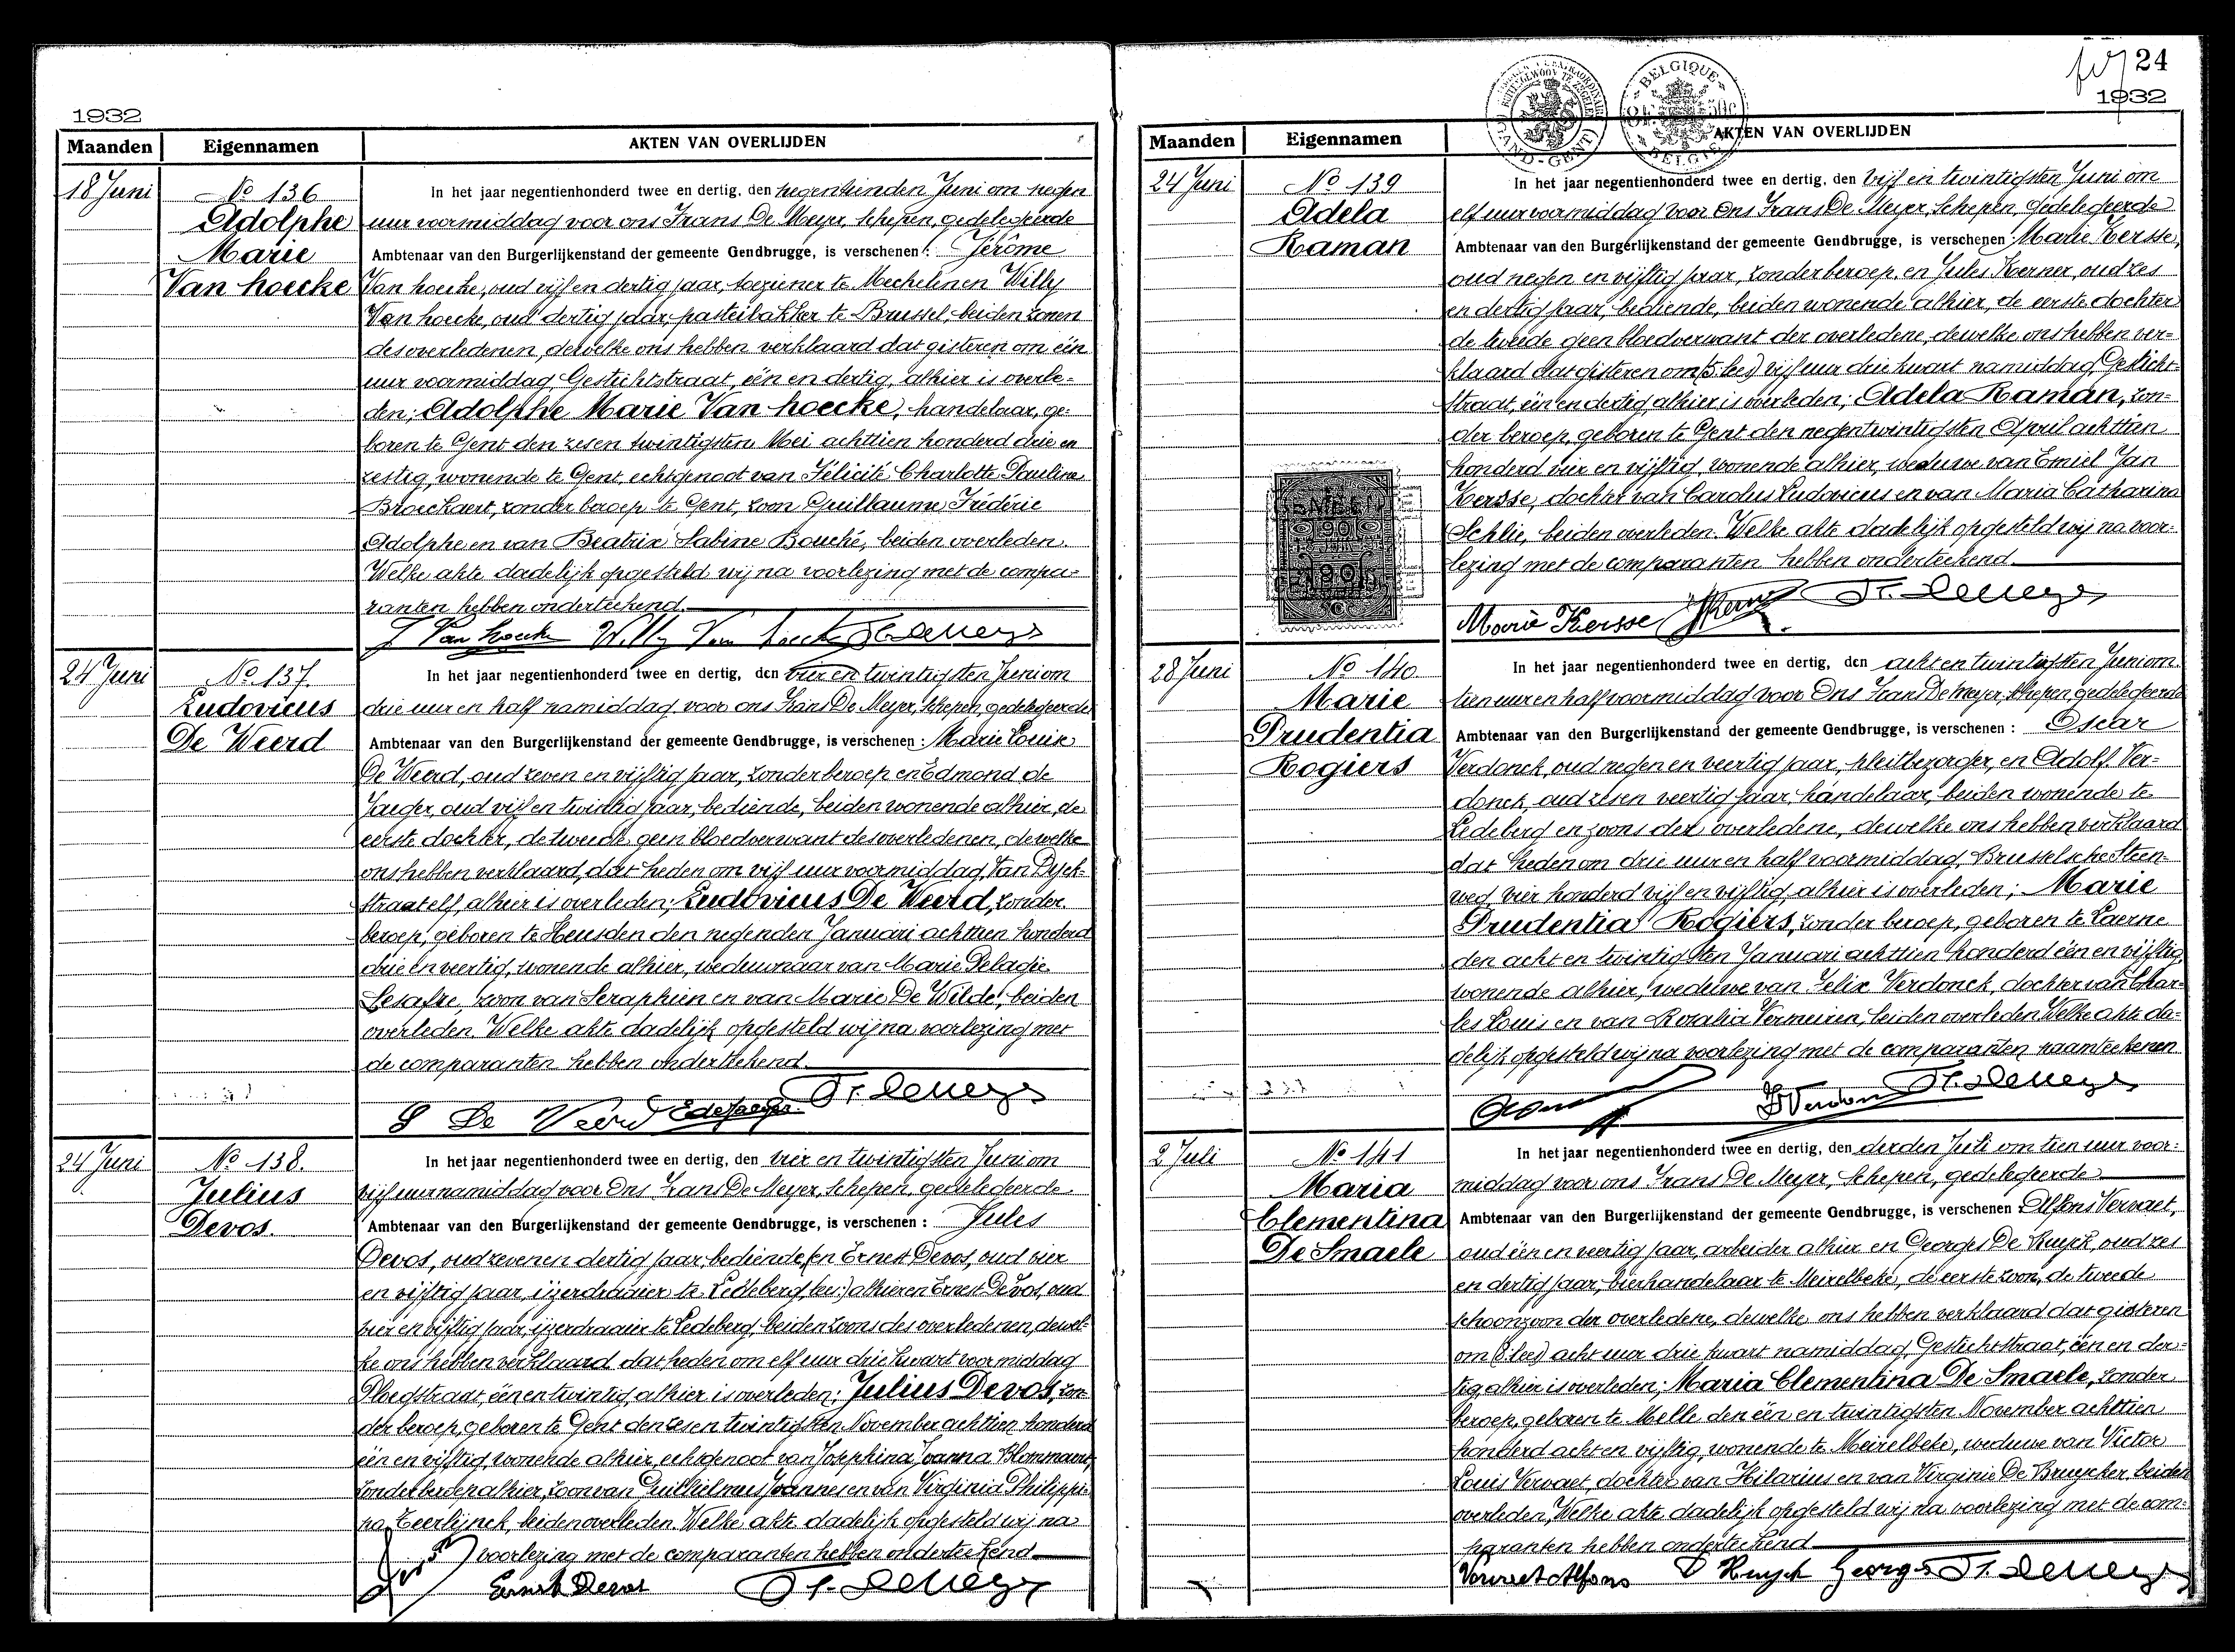 1932
Maanden Eigennamen AKTEN VAN OVERLIJDEN
18 Juni
No 136
Adolphe
Marie
Van hoecke
In het jaar negentienhonderd twee en dertig, den negentienden Juni om negen
uur voormiddag voor ons Frans De Meyer, schepen, gedelegeerde
Ambtenaar van den Burgerlijkenstand der gemeente Gendbrugge, is verschenen : Jérôme
Van hoecke, oud vijf en dertig jaar, toeziener te Mechelen en Willy
Van hoecke, oud dertig jaar, pasteibakker te Brussel, beiden zonen
des overledenen, dewelke ons hebben verklaard dat gisteren om één
uur voormiddag, Gestichtstraat, één en dertig, alhier is overle=
den; Adolphe Marie Van hoecke, handelaar, ge=
boren te Gent den zes en twintigsten Mei achttien honderd drie en
zestig, wonende te Gent, echtgenoot van Félicité Charlotte Pauline
Broeckaert, zonder beroep te Gent, zoon Guillaume Frédéric
Adolphe en van Beatrix Sabine Bouché, beiden overleden.
Welke akte dadelijk opgesteld wij na voorlezing met de compa=
ranten hebben onderteekend.
J Van hoecke Willy Van hoecke Fr. De Meyer
24 Juni
No 137.
Ludovicus
De Weerd
In het jaar negentienhonderd twee en dertig, den vier en twintigsten Juni om
drie uur en half namiddag voor ons Frans De Meyer, schepen, gedelegeerde
Ambtenaar van den Burgerlijkenstand der gemeente Gendbrugge, is verschenen : Marie Louise
De Weerd, oud zeven en vijftig jaar, zonder beroep en Edmond de
Jaeger, oud vijf en twintig jaar, bediende, beiden wonende alhier, de
eerste dochter, de tweede geen bloedverwant des overledenen, dewelke
ons hebben verklaard, dat heden om vijf uur voormiddag, Van Dyck=
straat elf, alhier is overleden; Ludovicus De Weerd, zonder
beroep, geboren te Heusden den negenden Januari achttien honderd
drie en veertig, wonende alhier, weduwnaar van Marie Pelagie
Lesafre, zoon van Seraphien en van Marie De Wilde, beiden
overleden. Welke akte dadelijk opgesteld wij na voorlezing met
de comparanten hebben onderteekend.
De Weerd E de Jaeger Fr. De Meyer
24 Juni
No 138.
Julius
Devos.
In het jaar negentienhonderd twee en dertig, den vier en twintigsten Juni om
vijf uur namiddag voor Ons Frans De Meyer, schepen, gedelegeerde
Ambtenaar van den Burgerlijkenstand der gemeente Gendbrugge, is verschenen : Jules
Devos, oud zeven en dertig jaar, bediende, (en Ernest Devos, oud vier
en vijftig jaar, ijzerdraaier te Ledeberg, lee:) alhier en Ernest Devos, oud
vier en vijftig jaar, ijzerdraaier te Ledeberg, beiden zoons des overledenen, dewel=
ke ons hebben verklaard dat heden om elf uur drie kwart voormiddag
Ploegstraat, één en twintig, alhier is overleden: Julius Devos, zon=
der beroep, geboren te Gent den zes en twintigsten November achttien honderd
één en vijftig, wonende alhier, echtgenoot van Josephina Joanna Blommaert,
zonder beroep alhier, zoon van Guilhielmus Joannes en van Virginia Philippi=
na Teerlijnck, beiden overleden. Welke akte dadelijk opgesteld wij na
voorlezing met de comparanten hebben onderteekend
Ernest Devos Fr. De Meyer
24
1932
BELGIQUE
BELGIE
Maanden Eigennamen AKTEN VAN OVERLIJDEN
24 Juni
No 139
Adela
Raman
In het jaar negentienhonderd twee en dertig, den vijf en twintigsten Juni om
elf uur voormiddag voor Ons Frans De Meyer, schepen, gedelegeerde
Ambtenaar van den Burgerlijkenstand der gemeente Gendbrugge, is verschenen : Marie Kersse,
oud negen en vijftig jaar, zonder beroep, en Jules Kerner, oud zes
en dertig jaar, bediende, beiden wonende alhier, de eerste dochter
de tweede geen bloedverwant der overledene, dewelke ons hebben ver=
klaard dat gisteren om (5 lees) vijf uur drie kwart namiddag, Gesticht=
straat, één en dertig, alhier is overleden; Adela Raman, zon=
der beroep, geboren te Gent den negentwintigsten April achttien
honderd vier en vijftig, wonende alhier, weduwe van Emiel Jan
Kersse, dochter van Carolus Ludovicus en van Maria Catharina
Schlie, beiden overleden. Welke akte dadelijk opgesteld wij na voor=
lezing met de comparanten hebben onderteekend.
Marie Kersse JKerner Fr. De Meyer
28 Juni
No 140.
Marie
Prudentia
Rogiers
In het jaar negentienhonderd twee en dertig, den acht en twintigsten Juni om
tien uur en half voormiddag voor Ons Frans De Meyer, schepen, gedelegeerde
Ambtenaar van den Burgerlijkenstand der gemeente Gendbrugge, is verschenen : Oscar
Verdonck, oud negen en veertig jaar, pleitbezorger, en Adolf Ver=
donck, oud zes en veertig jaar, handelaar, beiden wonende te
Ledeberg en zoons der overledene, dewelke ons hebben verklaard
dat heden om drie uur en half voormiddag, Brusselsche Steen=
weg vier honderd vijf en vijftig, alhier is overleden; Marie
Prudentia Rogiers, zonder beroep, geboren te Laerne
den acht en twintigsten Januari achttien honderd één en vijftig,
wonende alhier, weduwe van Felix Verdonck, dochter van Char=
les Louis en van Rosalia Vermeiren, beiden overleden. Welke akte da=
delijk opgesteld wij na voorlezing met de comparanten naamteekenen
Fr. De Meyer
2 Juli
No 141
Maria
Clementina
De Smaele
In het jaar negentienhonderd twee en dertig, den derden Juli om tien uur voor=
middag voor ons Frans De Meyer, schepen, gedelegeerde
Ambtenaar van den Burgerlijkenstand der gemeente Gendbrugge, is verschenen : Alfons Vervaet,
oud één en veertig jaar, arbeider alhier en Georges De Kuyck, oud zes
en dertig jaar, bierhandelaar te Meirelbeke, de eerste zoon, de tweede
schoonzoon der overledene, dewelke ons hebben verklaard dat gisteren
om (8 lees) acht uur drie kwart namiddag, Gestichtstraat, één en der=
tig, alhier is overleden; Maria Clementina De Smaele, zonder
beroep, geboren te Melle den één en twintigsten November achttien
honderd acht en vijftig, wonende te Meirelbeke, weduwe van Victor
Louis Vervaet, dochter van Hilarius en van Virginie De Bruycker, beiden
overleden, Welke akte dadelijk opgesteld wij na voorlezing met de com=
paranten hebben onderteekend
Vervaet Alfons D Kuyck Georges Fr. De Meyer